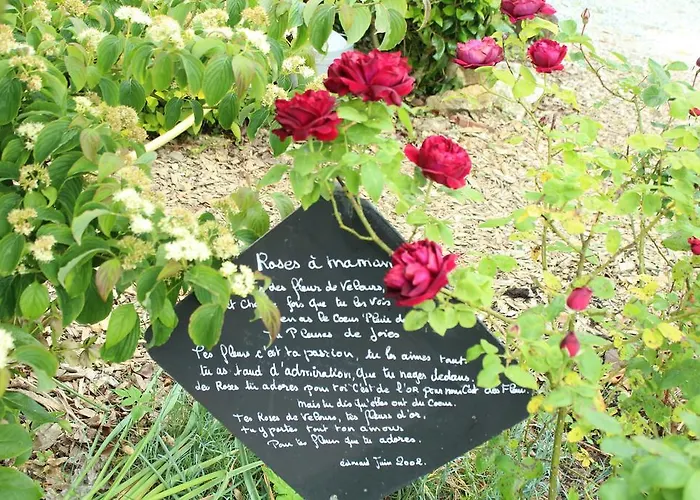 Roses à maman
des fleurs de Velours
Et chaque fois que tu les vois
en as le Coeur
Tu Pleures de Joies
Tes fleurs c'est ta passion, tu les aimes tant
tu as tand d'admiration, que tu nages dedans.
des Roses tu adores pour toi C'est de l'or pour nous C'est des fleurs
Mais tu dis qu'elles ont du Coeur.
Tes Roses de Velours, tes fleurs d'or.
tu y portes tout ton amour
Pour tes fleurs que tu adores.
Juin 2002.